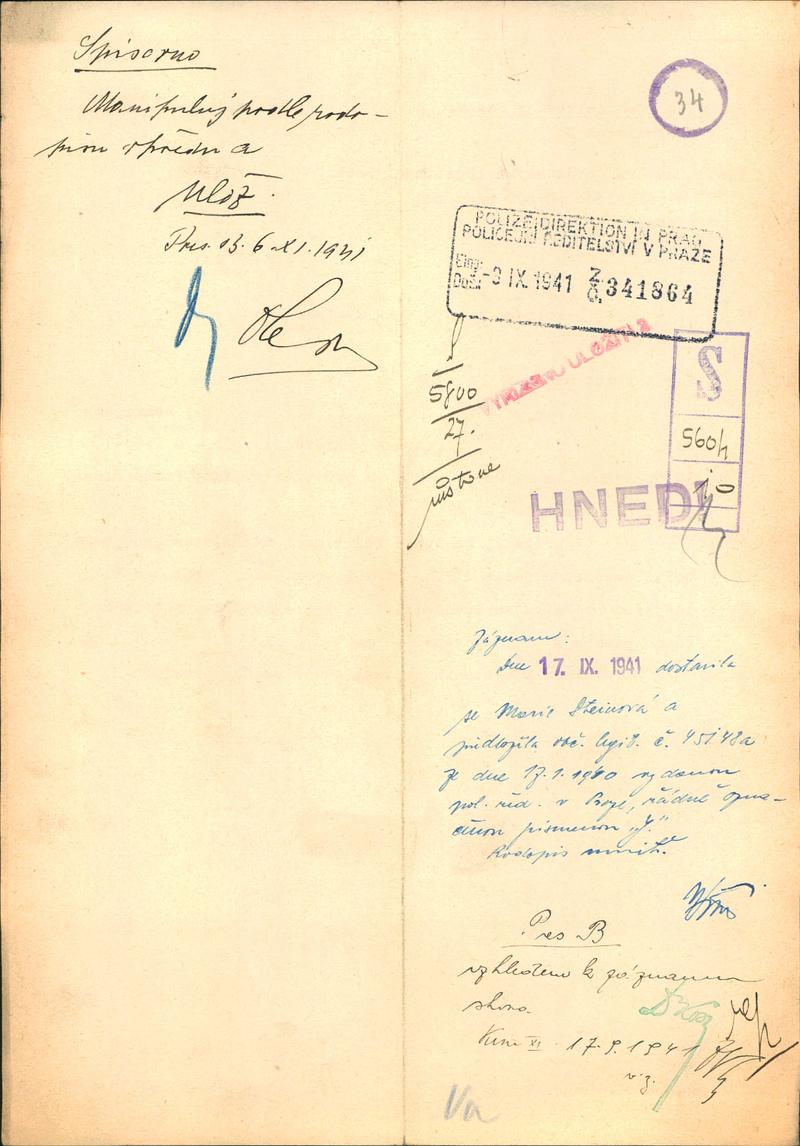 Spisovno
Manipuluj podle rodo-
pisu vpředu a
ulož.
Pres. B. 6. XI. 1941
34
POLIZEIDIREKTION IN PRAG
POLICEJNÍ ŘEDITELSTVÍ V PRAZE
Eing.
Došlo
-9 IX. 1941
Z.
Č.
341864
5800
27.
S
5604
HNEDI
Záznam:
Dne 17. IX. 1941 dostavila
se Marie Steinová a
předložila obč. legit. č. 45148a
ze dne 17.1.1940 vydanou
pol. řed. v Praze, řádně ozna-
čenou písmenem „J."
Rodopis uvnitř.
Pres B
vzhledem k záznamu
shora.
XI 17.9.1941
v.z.